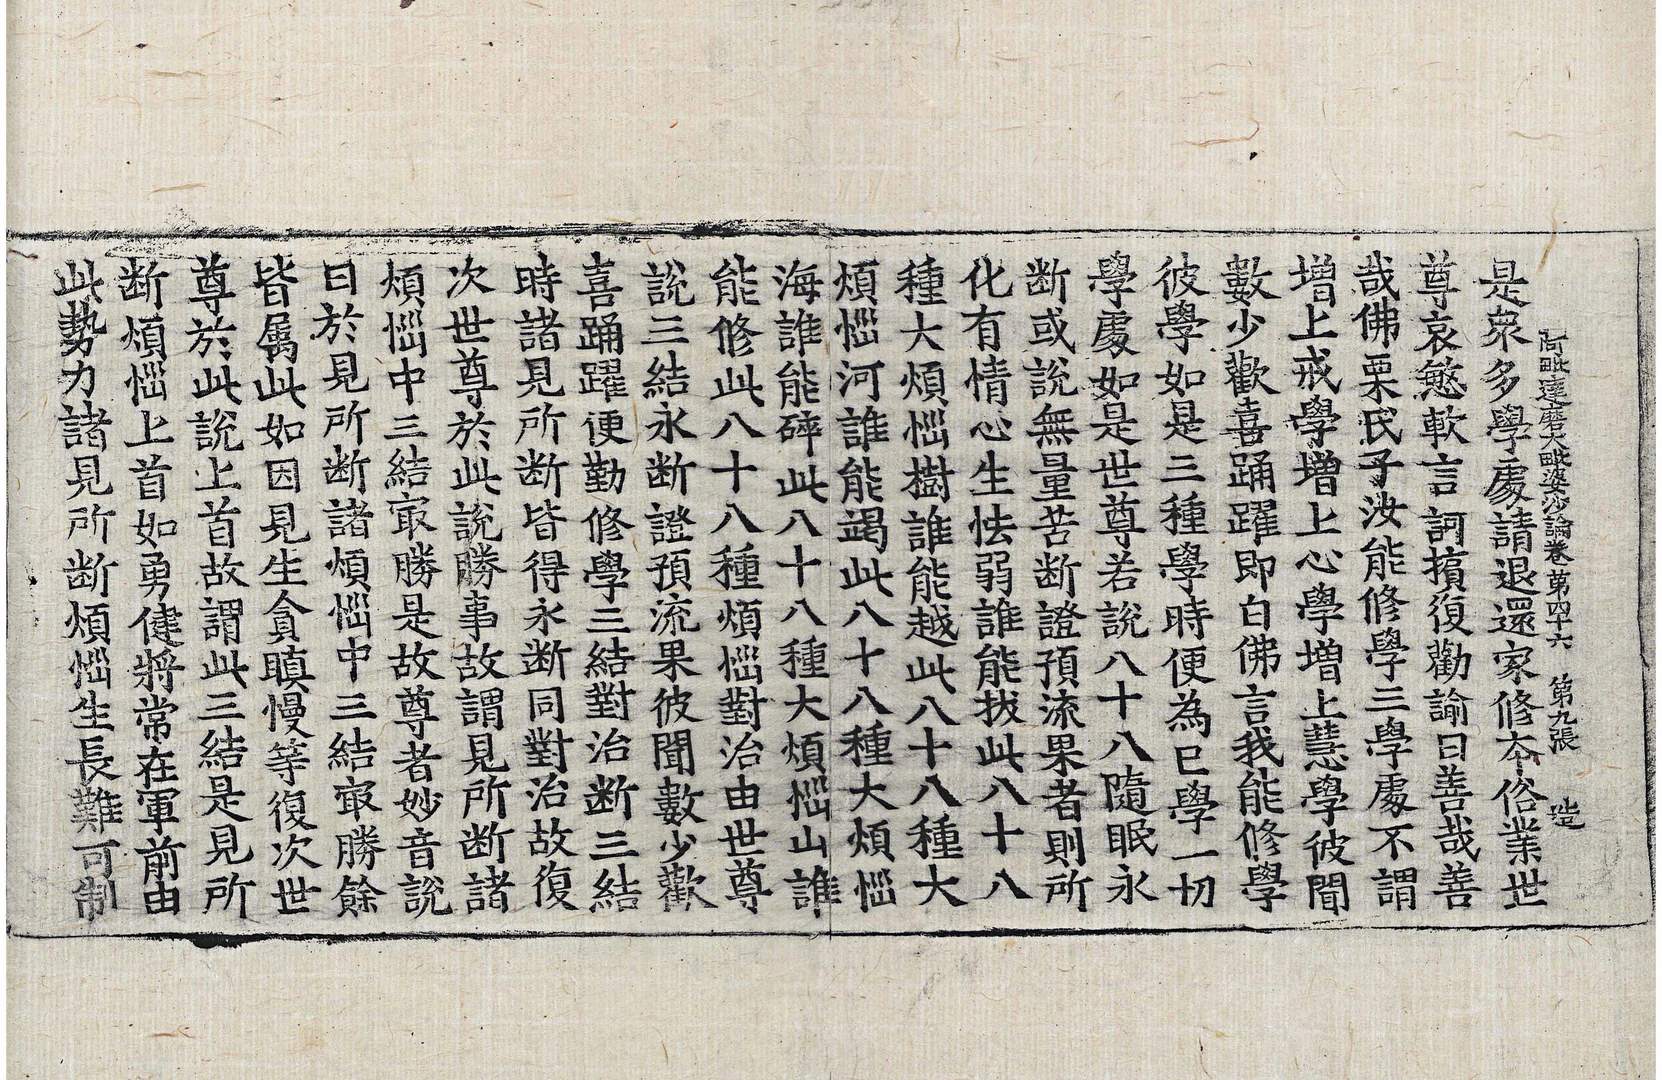 阿毗達磨大毗婆沙論卷第四十六 第九張 造
是衆多學處請退還家修本俗業世
尊哀愍軟言訶擯復勸諭曰善哉善
哉佛栗氏子汝能修學三學處不謂
增上戒學增上心學增上慧學彼聞
數少歡喜踊躍即白佛言我能修學
彼學如是三種學時便為已學一切
學處如是世尊若說八十八隨眠永
断或說無量苦断證預流果者則所
化有情心生怯弱誰能拔此八十八
種大煩惱樹誰能越此八十八種大
煩惱河誰能竭此八十八種大煩惱
海誰能碎此八十八種大煩惱山誰
能修此八十八種煩惱對治由世尊
說三結永断證預流果彼聞數少歡
喜踊躍便勤修學三結對治断三結
時諸見所断皆得永断同對治故復
次世尊於此說勝事故謂見所断諸
煩惱中三結㝡勝是故尊者妙音說
曰於見所断諸煩惱中三結㝡勝餘
皆属此如因見生貪瞋慢等復次世
尊於此說上首故謂此三結是見所
断煩惱上首如勇健將常在軍前由
此勢力諸見所断煩惱生長難可制